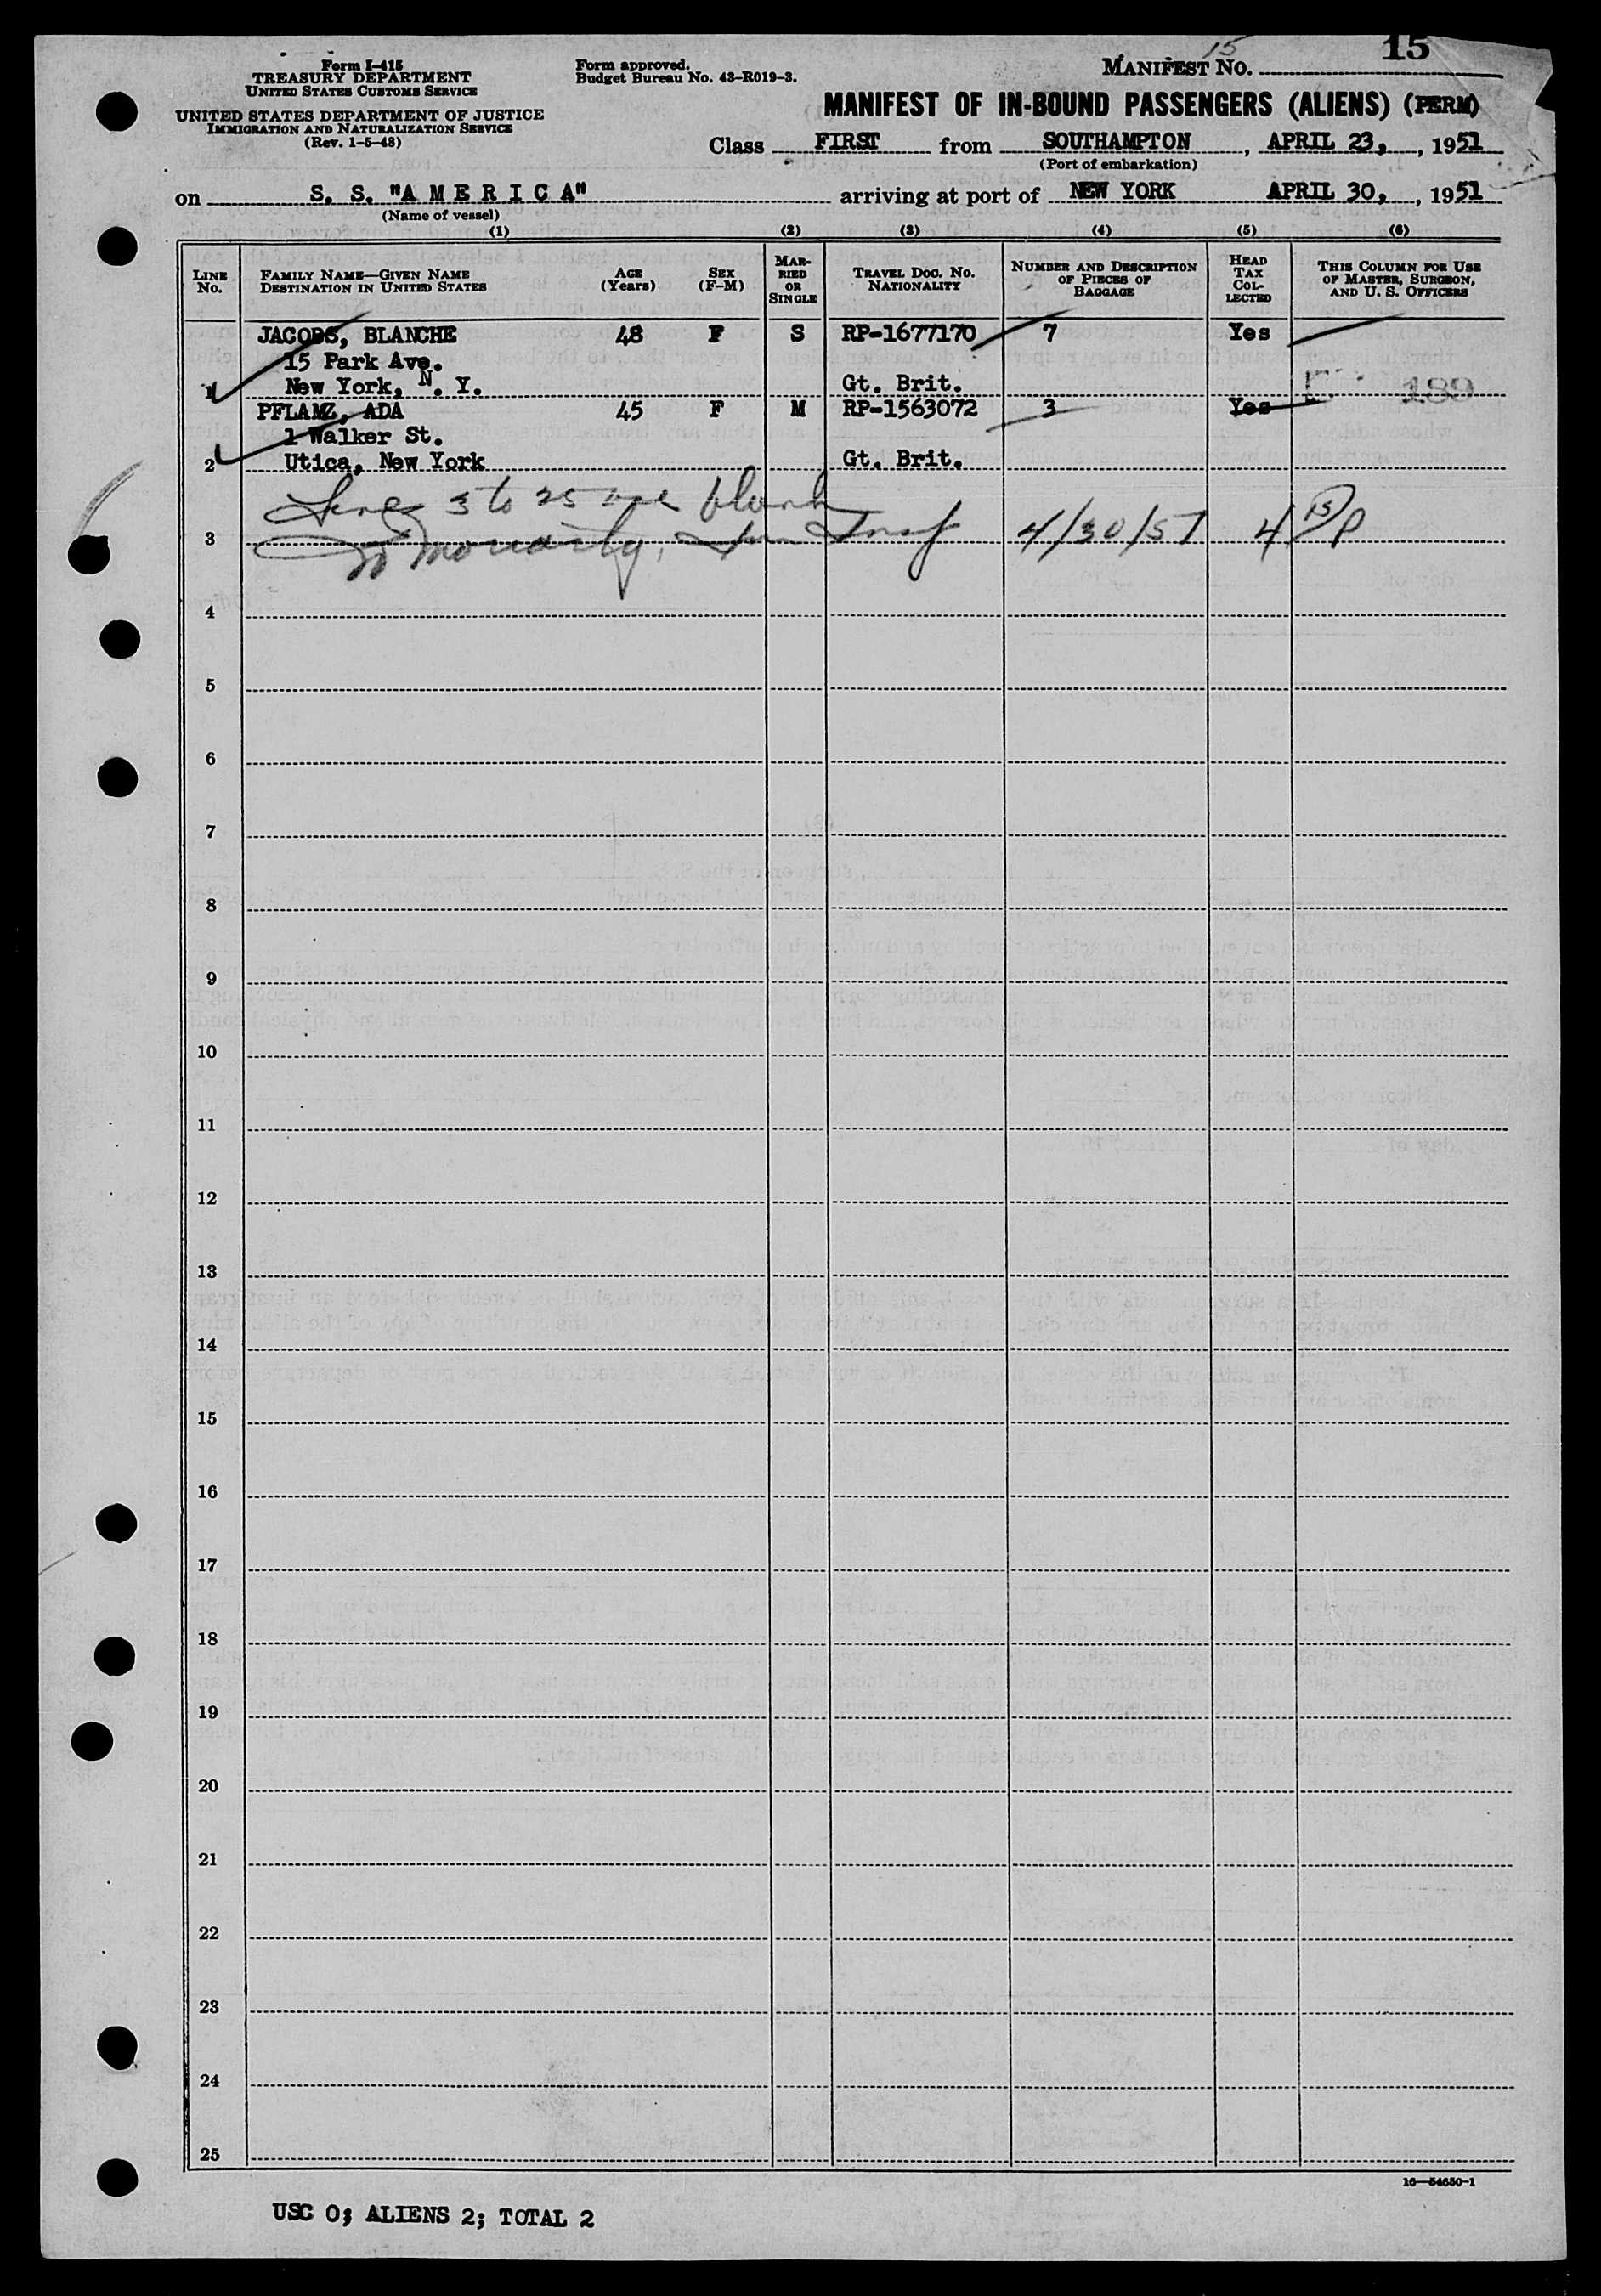 Form I-415
TREASURY DEPARTMENT
UNITED STATES CUSTOMS SERVICE
UNITED STATES DEPARTMENT OF JUSTICE
IMMIGRATION AND NATURALIZATION SERVICE
(Rev. 1-5-48)
Form approved.
Budget Bureau No. 43-R019-3.
15
MANIFEST NO. 15
MANIFEST OF IN-BOUND PASSENGERS (ALIENS) (PERM)
Class FIRST from SOUTHAMPTON, APRIL 23, 1951
(Port of embarkation)
on S. S. "A M E R I C A" arriving at port of NEW YORK APRIL 30, 1951
(Name of vessel)
(1) (2) (3) (4) (5) (6)
LINE NO.
FAMILY NAME—GIVEN NAME
DESTINATION IN UNITED STATES
AGE (Years)
SEX (F-M)
MARRIED OR SINGLE
TRAVEL DOC. NO.
NATIONALITY
NUMBER AND DESCRIPTION OF PIECES OF BAGGAGE
HEAD TAX COLLECTED
THIS COLUMN FOR USE OF MASTER, SURGEON, AND U. S. OFFICERS
JACOBS, BLANCHE 48 F S RP-1677170 7 Yes
15 Park Ave.
1 New York, N. Y. Gt. Brit. 189
PFLAMZ, ADA 45 F M RP-1563072 3 Yes
1 Walker St.
2 Utica, New York Gt. Brit.
Lines 3 to 25 are blank
3 Moriarty, Imm Insp 4/30/51 4
4
5
6
7
8
9
10
11
12
13
14
15
16
17
18
19
20
21
22
23
24
25
16—54650-1
USC 0; ALIENS 2; TOTAL 2